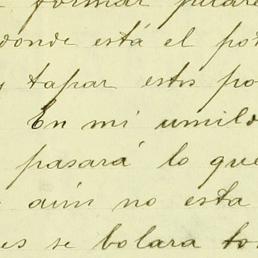 formar
donde está el po
y tapar estos po
En mi umild
pasará lo que
aún no esta
es se bolara to